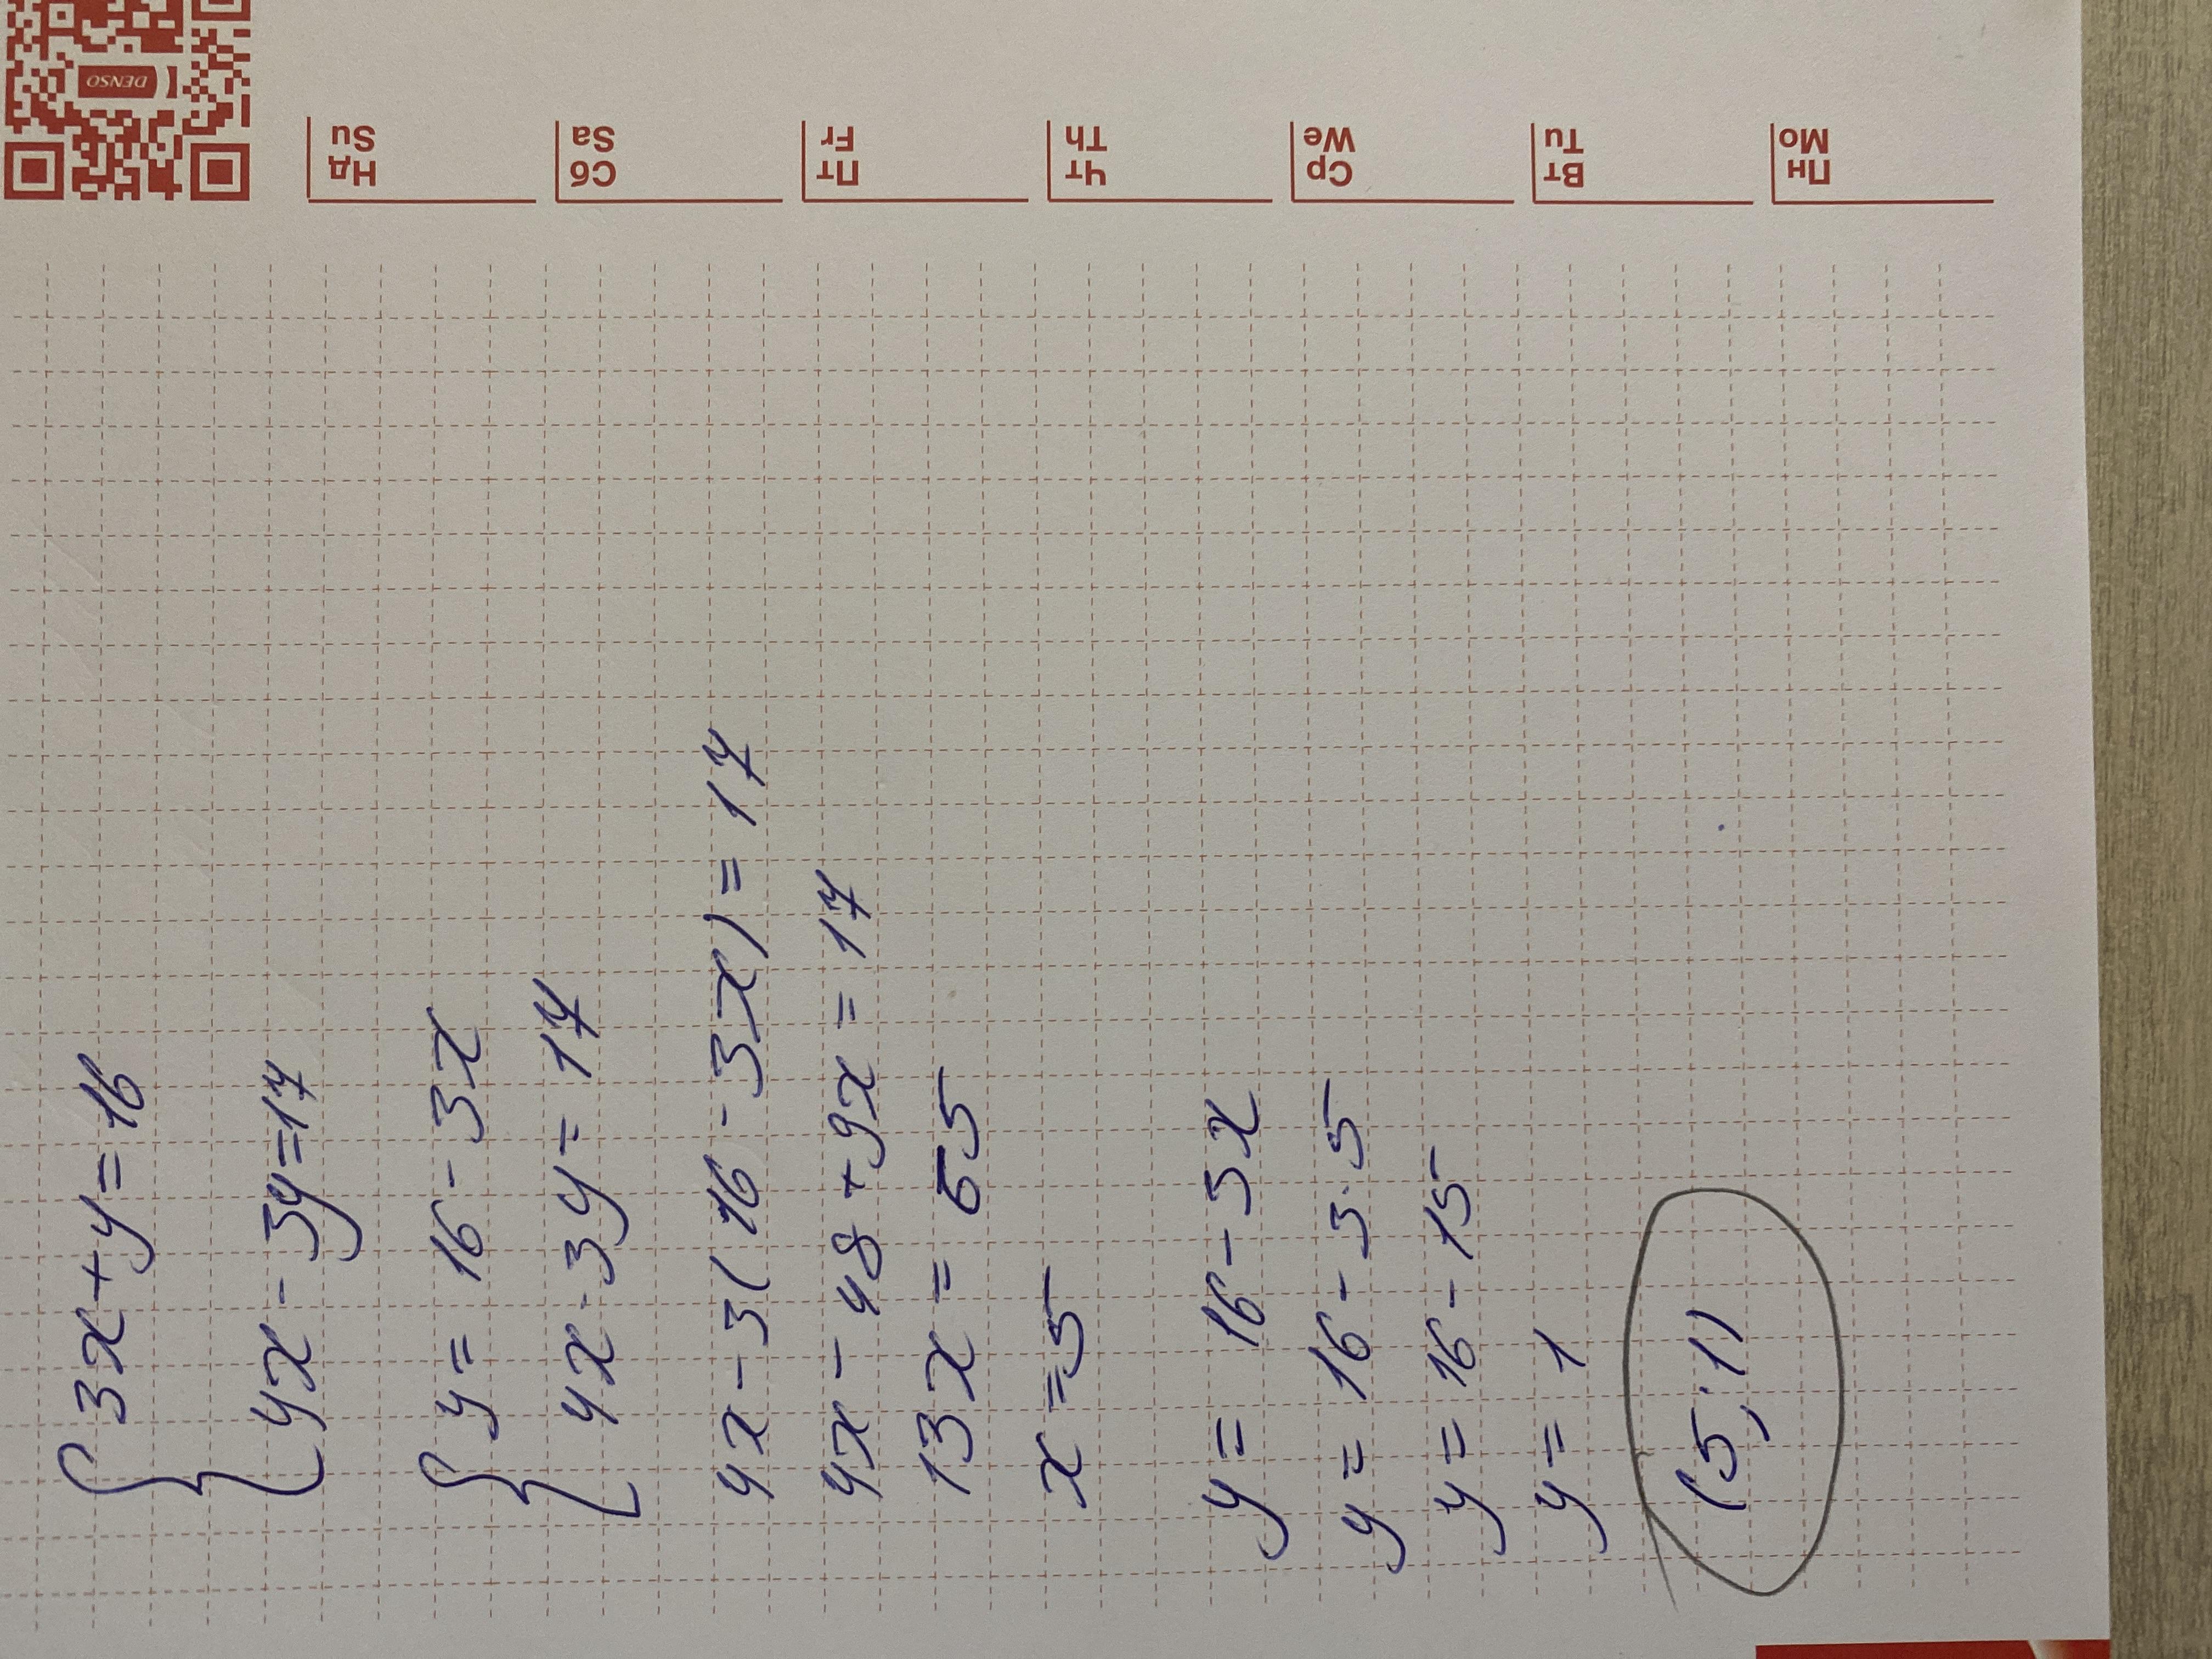 { 3x + y = 16
4x - 3y = 17
{ y = 16 - 3x
4x - 3y = 17
4x - 3(16 - 3x) = 17
4x - 48 + 9x = 17
13x = 65
x = 5
y = 16 - 3x
y = 16 - 3·5
y = 16 - 15
y = 1
(5; 1)
Пн Mo
Вт Tu
Ср We
Чт Th
Пт Fr
Сб Sa
Нд Su
DENSO